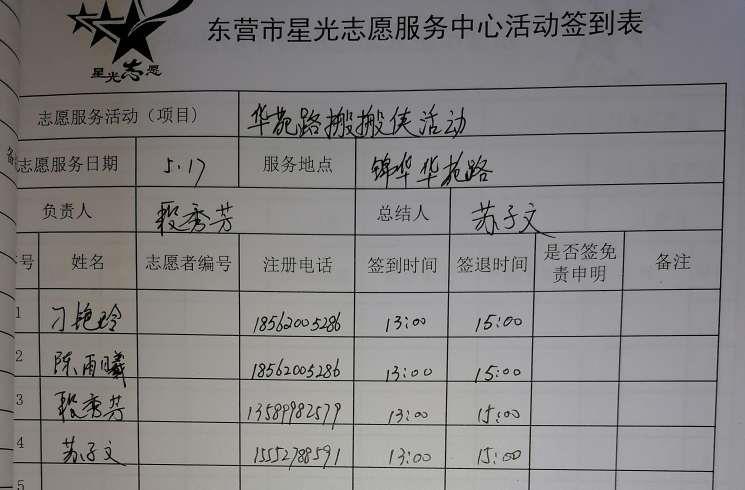 东营市星光志愿服务中心活动签到表
星光志愿
志愿服务活动（项目） 华苑路搬搬侠活动
志愿服务日期 5.17 服务地点 锦华华苑路
负责人 段秀芳 总结人 苏子文
号 姓名 志愿者编号 注册电话 签到时间 签退时间 是否签免责申明 备注
1 刁艳玲 18562005286 13:00 15:00
2 陈雨曦 18562005286 13:00 15:00
3 段秀芳 13589982579 13:00 15:00
4 苏子文 15552788591 13:00 15:00
5